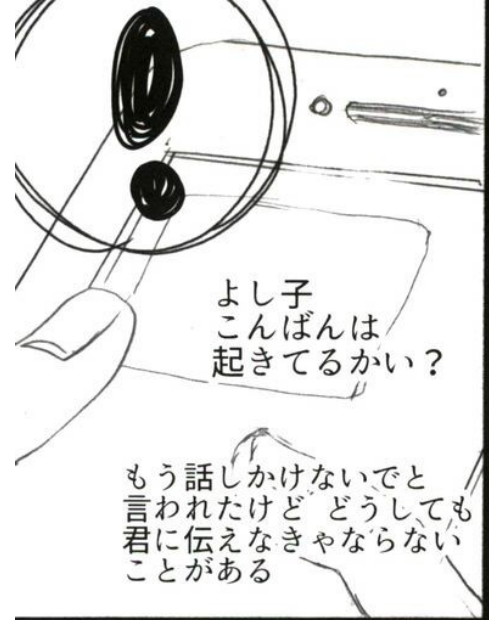 よし子
こんばんは
起きてるかい？
もう話しかけないでと
言われたけど どうしても
君に伝えなきゃならない
ことがある